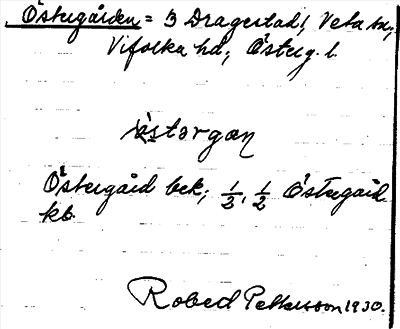 Östergården = 3 Dragestad, Veta sn,
Vifolka hd, Österg. l.
östərgan
Östergård bek; 1/2, 1/2 Östergård
kb.
Robert Pettersson 1930.